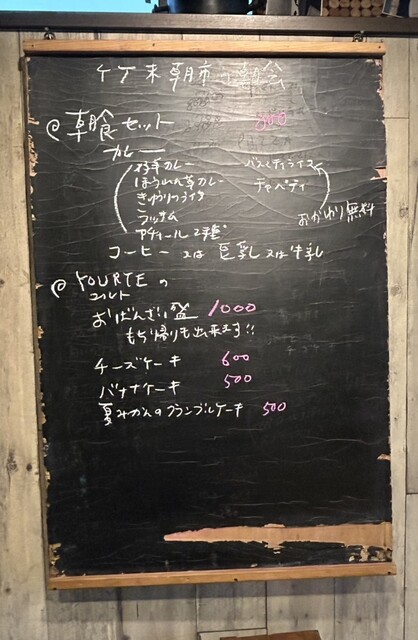 ケケ末朝市の朝会
@ 朝食セット 800
カレー
ほうれん草カレー
きゅうりのライタ
ラッサム
アチャール2種
バスマティライス
チャパティ
おかわり無料
コーヒー 又は 豆乳 又は 牛乳
@ YOURTE の
コルト
おばんざい盛 1000
もち帰りも出来ます!!
チーズケーキ 600
バナナケーキ 500
夏みかんのクランブルケーキ 500